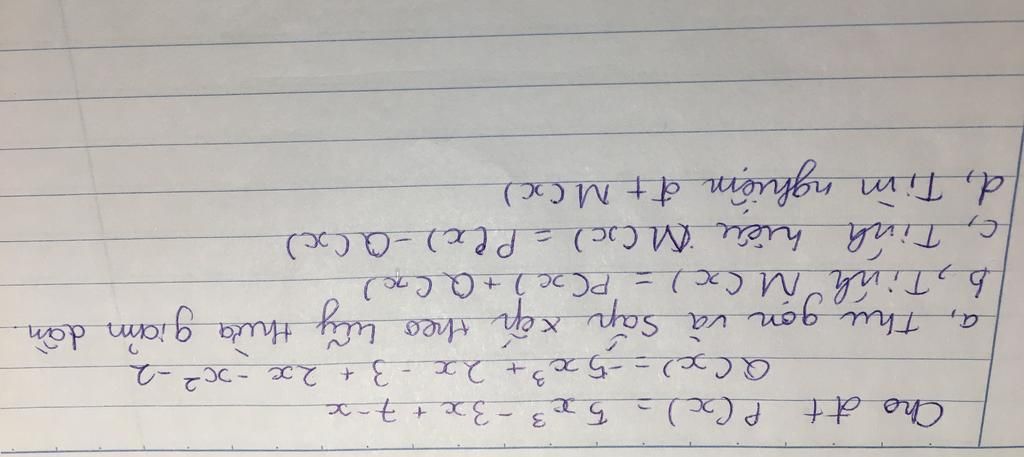 Cho đt P(x) = 5x³ - 3x + 7 - x
Q(x) = -5x³ + 2x - 3 + 2x - x² - 2
a, Thu gọn và sắp xếp theo lũy thừa giảm dần.
b, Tính M(x) = P(x) + Q(x)
c, Tính hiệu M(x) = P(x) - Q(x)
d, Tìm nghiệm đt M(x)